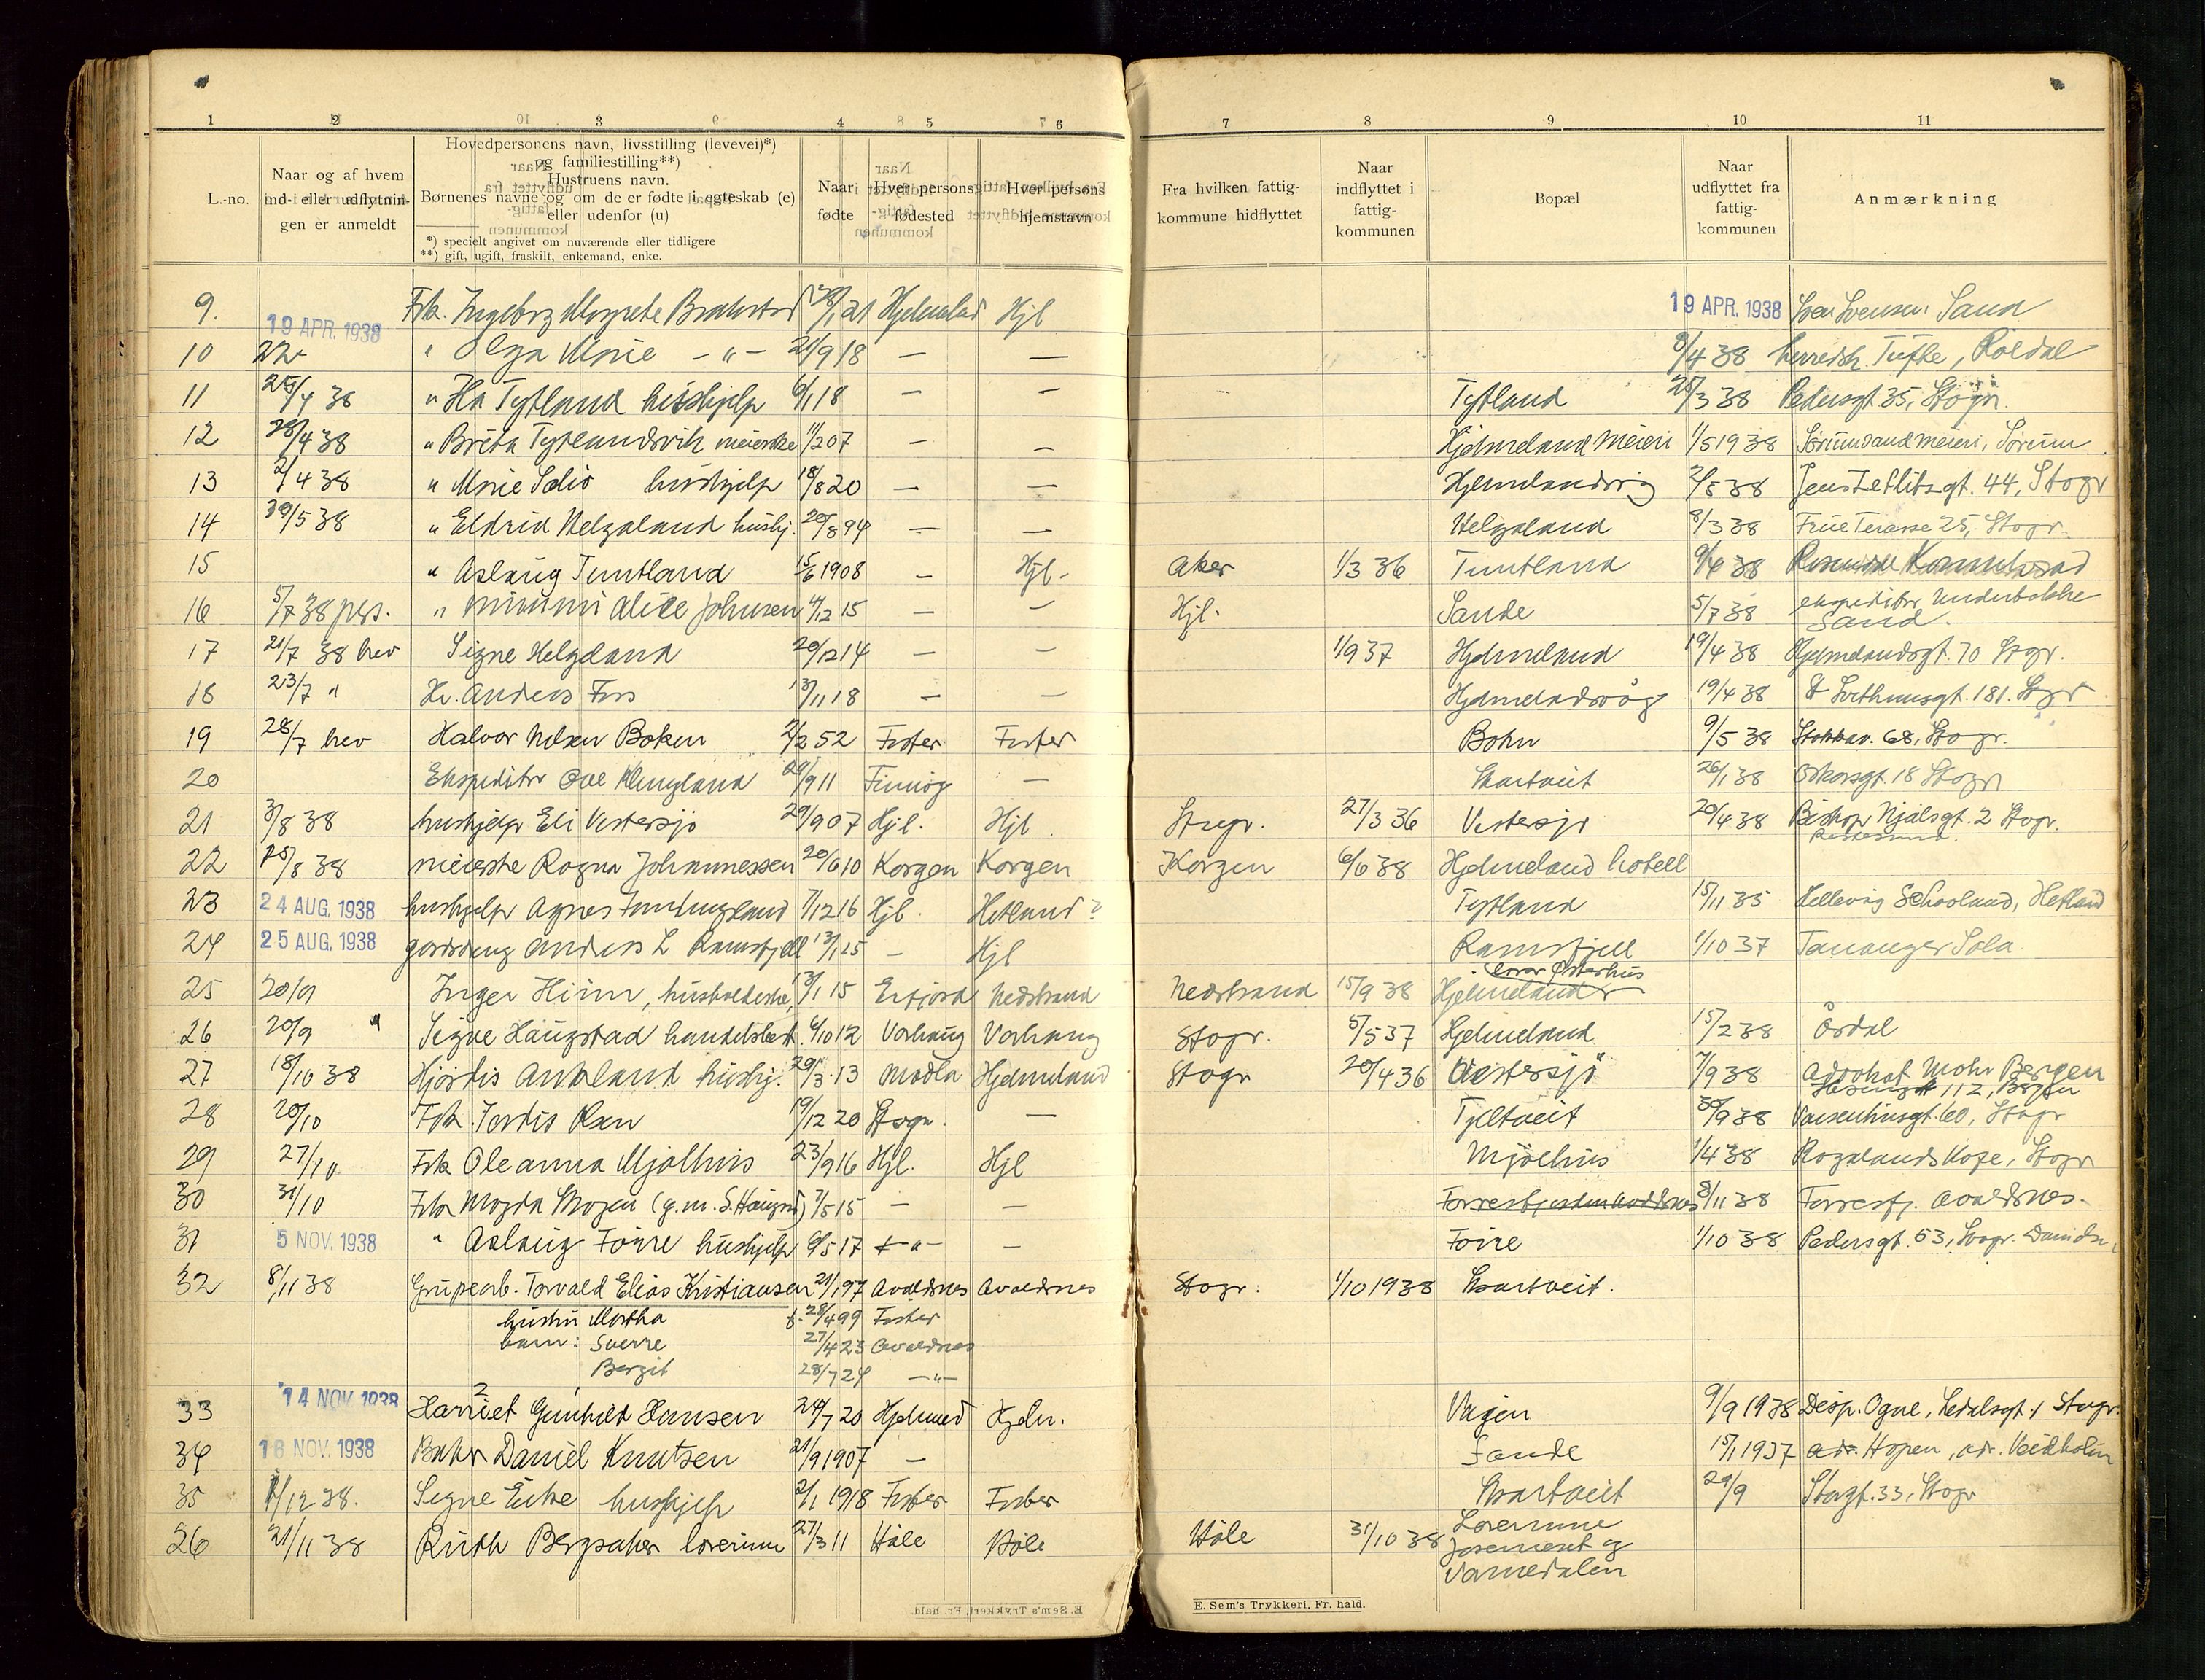 1 2 3 4 5 6 7 8 9 10 11
L.-no.
Naar og af hvem
ind- eller udflytnin-
gen er anmeldt
Hovedpersonens navn, livsstilling (levevei)*)
og familiestilling**)
Hustruens navn.
Børnenes navne og om de er fødte i egteskab (e)
eller udenfor (u)
*) specielt angivet om nuværende eller tidligere
**) gift, ugift, fraskilt, enkemand, enke.
Naar
fødte
Hver persons
fødested
Hver persons
hjemstavn
Fra hvilken fattig-
kommune hidflyttet
Naar
indflyttet i
fattig-
kommunen
Bopæl
Naar
udflyttet fra
fattig-
kommunen
Anmærkning
9. 19 APR. 1938 Frk. Ingeborg Margrete Hjelmeland Hjl 19 APR. 1938 Sven Svensen Sand
10 22- " Olga Marie -"- 21/9 18 — — 8/4 38 herredsk. Tufte, Röldal
11 25/4 38 " Tytland hushjelp 6/1 18 — — Tytland 25/3 38 Pedersgt. 35, Stvgr.
12 28/4 38 " Brita Tytlandsvik meierske 11/2 07 — — Hjelmeland Meieri 1/5 1938 Sörumsand meieri, Sörum
13 2/4 38 " Marie hushjelp 18/8 20 — — Hjelmelandsvåg 2/5 38 Jens Zetlitzgt. 44, Stvgr
14 30/5 38 " Eldrid Helgaland hushj. 20/8 94 — — Helgaland 8/3 38 Frue Terasse 25, Stvgr.
15 " Aslaug Tuntland 15/6 1908 — Hjl. Aker 1/3 36 Tuntland 9/4 38
16 5/7 38 pers. " Mimmi Alice Johnsen 4/12 15 — — Hjl. Sande 5/7 38 ekspeditr. Underbakke
Sand.
17 21/7 38 brev Signe Helgeland 20/12 14 — — 1/9 37 Hjelmeland 19/4 38 Hjelmelandsgt. 70 Stvgr.
18 23/7 " Hr. Anders Foss 13/11 18 — — Hjelmelandsvåg 19/4 38 St Svithunsgt. 181. Stvgr
19 28/7 brev Halvor Nilsen Boken 2/2 52 Fister Fister Bohn 9/5 38 Stokkav. 68, Stvgr.
20 Ekspeditr Ove 9 11 Finnöy — Skartveit 26/1 38 Oskarsgt. 18 Stvgr
21 3/8 38 hushjelp Eli Vestersjö 29/9 07 Hjl. Hjl. Stvgr. 27/3 36 Vestersjö 20/4 38 Biskop Njålsgt. 2 Stvgr.
22 15/8 38 meierske Ragna Johannessen 20/6 10 Korgen Korgen Korgen 6/6 38 Hjelmeland hotell
23 24 AUG. 1938 hushjelp Agnes 7/12 16 Hjl. Hetland? Tytland 15/11 35 Hellevåg Skoland, Hetland
24 25 AUG. 1938 gardsdreng Anders L Ramsfjell 13/1 15 — Hjl Ramsfjell 1/10 37 Tananger Sola.
25 20/9 Inger Hiim, husholderske, 13/1 15 Erfjord Nedstrand Nedstrand 15/9 38 Hjelmeland
Österhus
26 20/9 " Signe Haugstad handelsbest. 6/10 12 Varhaug Varhaug Stvgr. 5/5 37 Hjelmeland 15/2 38 Årdal
27 18/10 38 Hjördis Aukland hushj. 29/3 13 Madla Hjelmeland Stvgr 20/4 36 Vestersjö 7/9 38 Advokat Mohr Bergen
112, Bergen
28 20/10 Frk. Jordis 19/12 20 Stvgr. — Tjeltveit 30/9 38 Vaisenhusgt. 60, Stvgr
29 27/10. Frk Oleanna Mjølhus 23/9 16 Hjl. Hjl Mjölhus 1/4 38 Rogalands Kafe, Stvgr
30 31/10 Frk Magda Skogen (g.m. S. Haugst) 7/5 15 — — 8/11 38 Førresfj. Avaldsnes.
31 5 NOV. 1938 " Aslaug Foire hushjelp 6/5 17 -"- — Foire 1/10 38 Pedersgt. 53, Stvgr.
32 8/11 38 Grubearb. Torvald Elias Kristiansen 21/1 97 Avaldsnes Avaldsnes Stvgr. 1/10 1938 Skartveit.
hustru Martha f. 28/4 99 Fister
barn: Sverre 27/4 23 Avaldsnes
Bergit 28/7 24 -"-
33 14 NOV. 1938 Harriet Gunhild Hansen 24/7 20 Hjelmel Hjelm. Vågen 9/9 1938 Disp. Ogne, Ledalsgt. 1 Stvgr.
34 16 NOV. 1938 Baker Daniel Knutsen 21/9 1907 — Sande 15/1 1937 adr. Hopen, adr. Veidholm
35 1/12 38. Signe Eike hushjelp 2/1 1918 Fister Fister Skartveit 29/9 Storgt. 33, Stvgr
26 21/11 38 Ruth Bergsaker lærerinne 27/3 11 Höle Höle Höle 31/10 38 Lærerinne
Jøseneset og
Vormedalen
E. Sem's Trykkeri, Fr. hald.